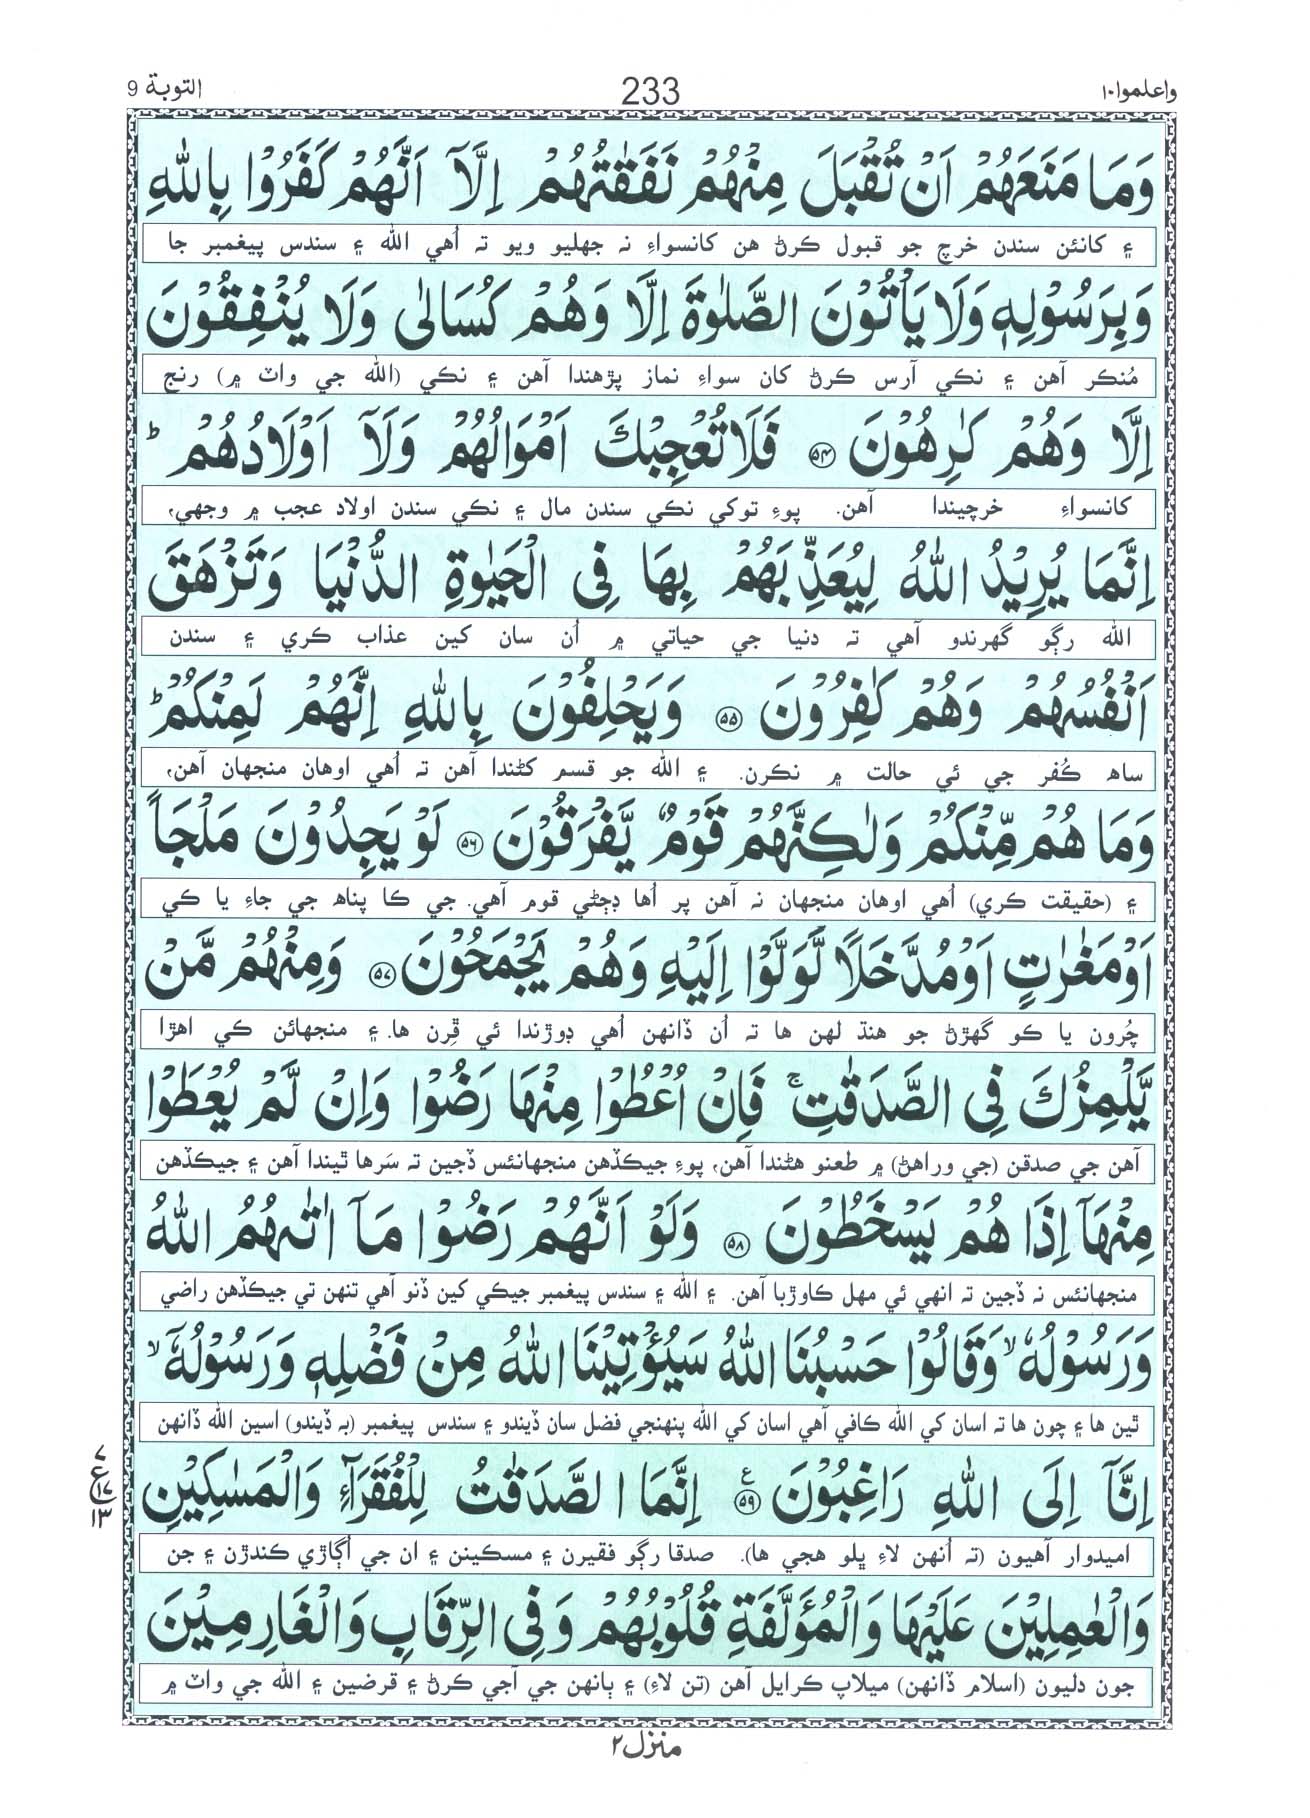 واعلموا١٠ 233 التوبة 9
وَمَا مَنَعَهُمْ اَنْ تُقْبَلَ مِنْهُمْ نَفَقٰتُهُمْ اِلَّآ اَنَّهُمْ كَفَرُوْا بِاللّٰهِ
۽ کانئن سندن خرچ جو قبول ڪرڻ هن کانسواءِ نہ جهليو ويو تہ اُهي الله ۽ سندس پيغمبر جا
وَبِرَسُوْلِهٖ وَلَا يَاْتُوْنَ الصَّلٰوةَ اِلَّا وَهُمْ كُسَالٰى وَلَا يُنْفِقُوْنَ
مُنڪر آهن ۽ نڪي آرس ڪرڻ کان سواءِ نماز پڙهندا آهن ۽ نڪي (الله جي واٽ ۾) رنج
اِلَّا وَهُمْ كٰرِهُوْنَ ۝۵۴ فَلَا تُعْجِبْكَ اَمْوَالُهُمْ وَلَآ اَوْلَادُهُمْ ؕ
کانسواءِ خرچيندا آهن. پوءِ توکي نڪي سندن مال ۽ نڪي سندن اولاد عجب ۾ وجهي،
اِنَّمَا يُرِيْدُ اللّٰهُ لِيُعَذِّبَهُمْ بِهَا فِى الْحَيٰوةِ الدُّنْيَا وَتَزْهَقَ
الله رڳو گهرندو آهي تہ دنيا جي حياتي ۾ اُن سان کين عذاب ڪري ۽ سندن
اَنْفُسُهُمْ وَهُمْ كٰفِرُوْنَ ۝۵۵ وَيَحْلِفُوْنَ بِاللّٰهِ اِنَّهُمْ لَمِنْكُمْ ؕ
ساہ ڪُفر جي ئي حالت ۾ نڪرن. ۽ الله جو قسم کڻندا آهن تہ اُهي اوهان منجهان آهن،
وَمَا هُمْ مِّنْكُمْ وَلٰكِنَّهُمْ قَوْمٌ يَّفْرَقُوْنَ ۝۵۶ لَوْ يَجِدُوْنَ مَلْجَاً
۽ (حقيقت ڪري) اُهي اوهان منجهان نہ آهن پر اُها ڊڄڻي قوم آهي. جي ڪا پناہ جي جاءِ يا ڪي
اَوْ مَغٰرٰتٍ اَوْ مُدَّخَلًا لَّوَلَّوْا اِلَيْهِ وَهُمْ يَجْمَحُوْنَ ۝۵۷ وَمِنْهُمْ مَّنْ
چُرون يا ڪو گهڙڻ جو هنڌ لهن ها تہ اُن ڏانهن اُهي ڊوڙندا ئي ڦِرن ها. ۽ منجهائن ڪي اهڙا
يَّلْمِزُكَ فِى الصَّدَقٰتِ ۚ فَاِنْ اُعْطُوْا مِنْهَا رَضُوْا وَاِنْ لَّمْ يُعْطَوْا
آهن جي صدقن (جي وراهڻ) ۾ طعنو هڻندا آهن، پوءِ جيڪڏهن منجهانئس ڏجين تہ سَرها ٿيندا آهن ۽ جيڪڏهن
مِنْهَآ اِذَا هُمْ يَسْخَطُوْنَ ۝۵۸ وَلَوْ اَنَّهُمْ رَضُوْا مَآ اٰتٰىهُمُ اللّٰهُ
منجهانئس نہ ڏجين تہ انهي ئي مهل ڪاوڙبا آهن. ۽ الله ۽ سندس پيغمبر جيڪي کين ڏنو آهي تنهن تي جيڪڏهن راضي
وَرَسُوْلُهٗ ۙ وَقَالُوْا حَسْبُنَا اللّٰهُ سَيُؤْتِيْنَا اللّٰهُ مِنْ فَضْلِهٖ وَرَسُوْلُهٗٓ ۙ
ٿين ها ۽ چون ها تہ اسان کي الله ڪافي آهي اسان کي الله پنهنجي فضل سان ڏيندو ۽ سندس پيغمبر (بہ ڏيندو) اسين الله ڏانهن
اِنَّآ اِلَى اللّٰهِ رَاغِبُوْنَ ۝۵۹ ع اِنَّمَا الصَّدَقٰتُ لِلْفُقَرَآءِ وَالْمَسٰكِيْنِ
٧ ع ١٧ ١٣
اميدوار آهيون (تہ اُنهن لاءِ ڀلو هجي ها). صدقا رڳو فقيرن ۽ مسڪينن ۽ ان جي اُڳاڙي ڪندڙن ۽ جن
وَالْعٰمِلِيْنَ عَلَيْهَا وَالْمُؤَلَّفَةِ قُلُوْبُهُمْ وَفِى الرِّقَابِ وَالْغَارِمِيْنَ
جون دليون (اسلام ڏانهن) ميلاپ ڪرايل آهن (تن لاءِ) ۽ ٻانهن جي آجي ڪرڻ ۽ قرضين ۽ الله جي واٽ ۾
منزل ٢